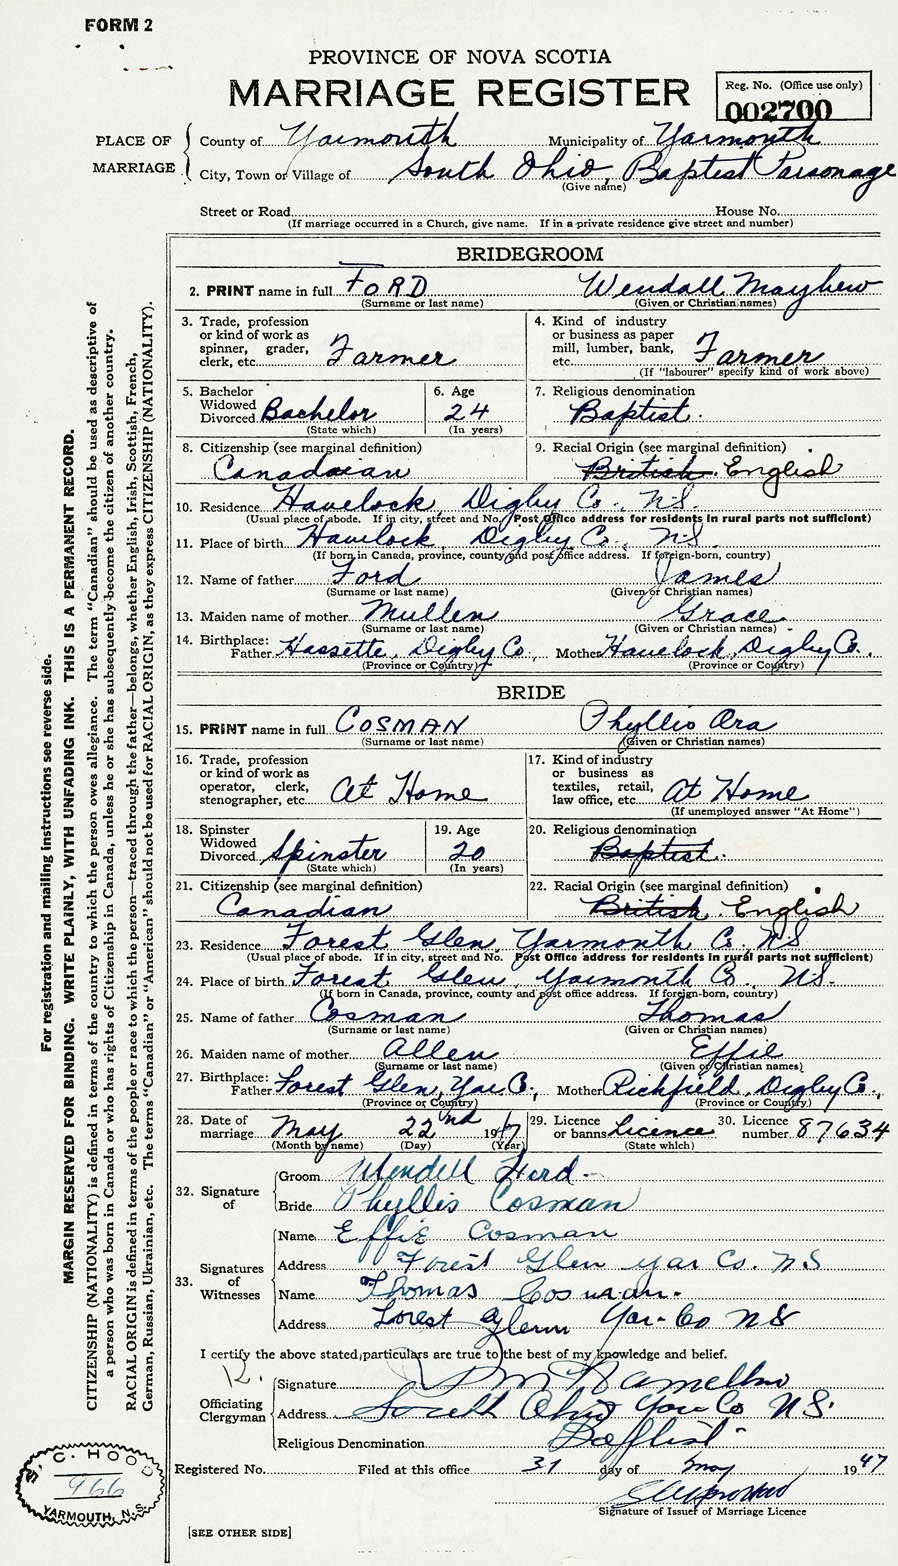 FORM 2
PROVINCE OF NOVA SCOTIA
MARRIAGE REGISTER
Reg. No. (Office use only)
002700
PLACE OF MARRIAGE
County of Yarmouth Municipality of Yarmouth
City, Town or Village of South Ohio, Baptist Parsonage
(Give name)
Street or Road House No.
(If marriage occurred in a Church, give name. If in a private residence give street and number)
BRIDEGROOM
2. PRINT name in full FORD Wendall Mayhew
(Surname or last name) (Given or Christian names)
3. Trade, profession or kind of work as spinner, grader, clerk, etc. Farmer
4. Kind of industry or business as paper mill, lumber, bank, etc. Farmer
(If "labourer" specify kind of work above)
5. Bachelor Widowed Divorced Bachelor
(State which)
6. Age 24
(In years)
7. Religious denomination Baptist.
8. Citizenship (see marginal definition) Canadaian
9. Racial Origin (see marginal definition) British. English
10. Residence Havelock, Digby Co., N.S.
(Usual place of abode. If in city, street and No. Post Office address for residents in rural parts not sufficient)
11. Place of birth Havelock, Digby Co., N.S.
(If born in Canada, province, county and post office address. If foreign-born, country)
12. Name of father Ford James
(Surname or last name) (Given or Christian names)
13. Maiden name of mother Mullen Grace.
(Surname or last name) (Given or Christian names)
14. Birthplace: Father Hassette, Digby Co., Mother Havelock, Digby Co.,
(Province or Country) (Province or Country)
BRIDE
15. PRINT name in full COSMAN Phyllis Ora
(Surname or last name) (Given or Christian names)
16. Trade, profession or kind of work as operator, clerk, stenographer, etc. At Home
17. Kind of industry or business as textiles, retail, law office, etc. At Home
(If unemployed answer "At Home")
18. Spinster Widowed Divorced Spinster
(State which)
19. Age 20
(In years)
20. Religious denomination Baptist.
21. Citizenship (see marginal definition) Canadian
22. Racial Origin (see marginal definition) British. English
23. Residence Forest Glen, Yarmouth Co. N.S
(Usual place of abode. If in city, street and No. Post Office address for residents in rural parts not sufficient)
24. Place of birth Forest Glen, Yarmouth Co. N.S.
(If born in Canada, province, county and post office address. If foreign-born, country)
25. Name of father Cosman Thomas
(Surname or last name) (Given or Christian names)
26. Maiden name of mother Allen Effie
(Surname or last name) (Given or Christian names)
27. Birthplace: Father Forest Glen, Yar Co., Mother Richfield, Digby Co.,
(Province or Country) (Province or Country)
28. Date of marriage May 22nd 1947
(Month by name) (Day) (Year)
29. Licence or banns Licence
(State which)
30. Licence number 87634
32. Signature of
Groom Wendell Ford
Bride Phyllis Cosman
33. Signatures of Witnesses
Name Effie Cosman
Address Forest Glen Yar Co. N S
Name Thomas Cosman.
Address Forest Glenn Yar- Co N S
I certify the above stated particulars are true to the best of my knowledge and belief.
Officiating Clergyman
Signature
Address South Ohio Yar Co N.S.
Religious Denomination Baptist
Registered No. Filed at this office 31 day of May 1947
Signature of Issuer of Marriage Licence
[SEE OTHER SIDE]
For registration and mailing instructions see reverse side.
MARGIN RESERVED FOR BINDING. WRITE PLAINLY, WITH UNFADING INK. THIS IS A PERMANENT RECORD.
CITIZENSHIP (NATIONALITY) is defined in terms of the country to which the person owes allegiance. The term "Canadian" should be used as descriptive of
a person who was born in Canada or who has rights of Citizenship in Canada, unless he or she has subsequently become the citizen of another country.
RACIAL ORIGIN is defined in terms of the people or race to which the person—traced through the father—belongs, whether English, Irish, Scottish, French,
German, Russian, Ukrainian, etc. The terms "Canadian" or "American" should not be used for RACIAL ORIGIN, as they express CITIZENSHIP (NATIONALITY).
C. HOOD
966
YARMOUTH, N.S.